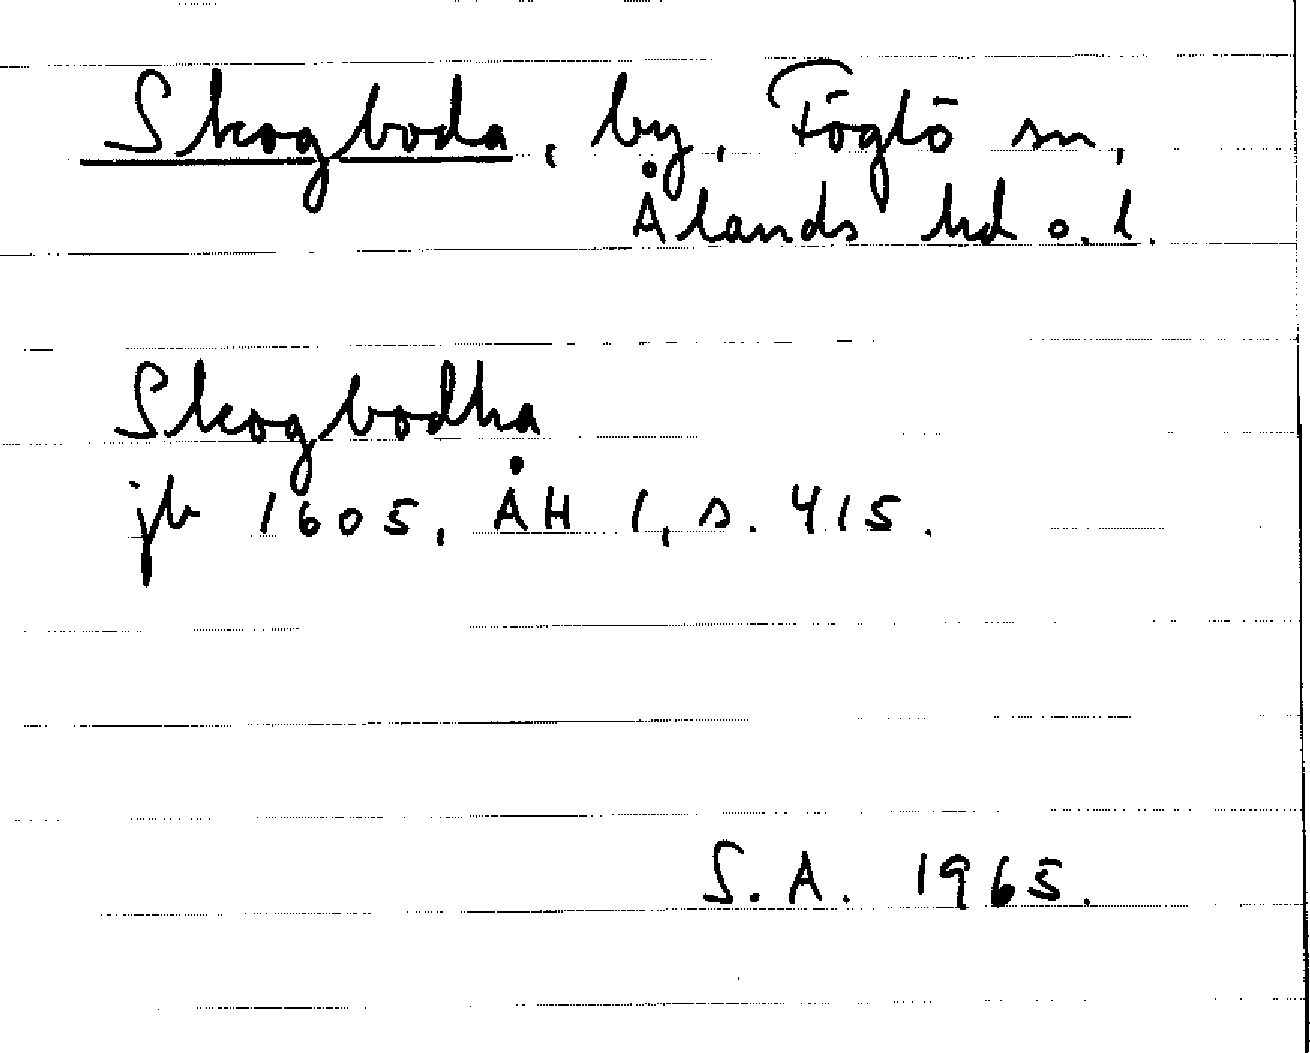 Skogboda, by, Föglö sn,
Ålands hd o. l.
Skogbodha
jb 1605, ÅH 1, s. 415.
S. A. 1965.